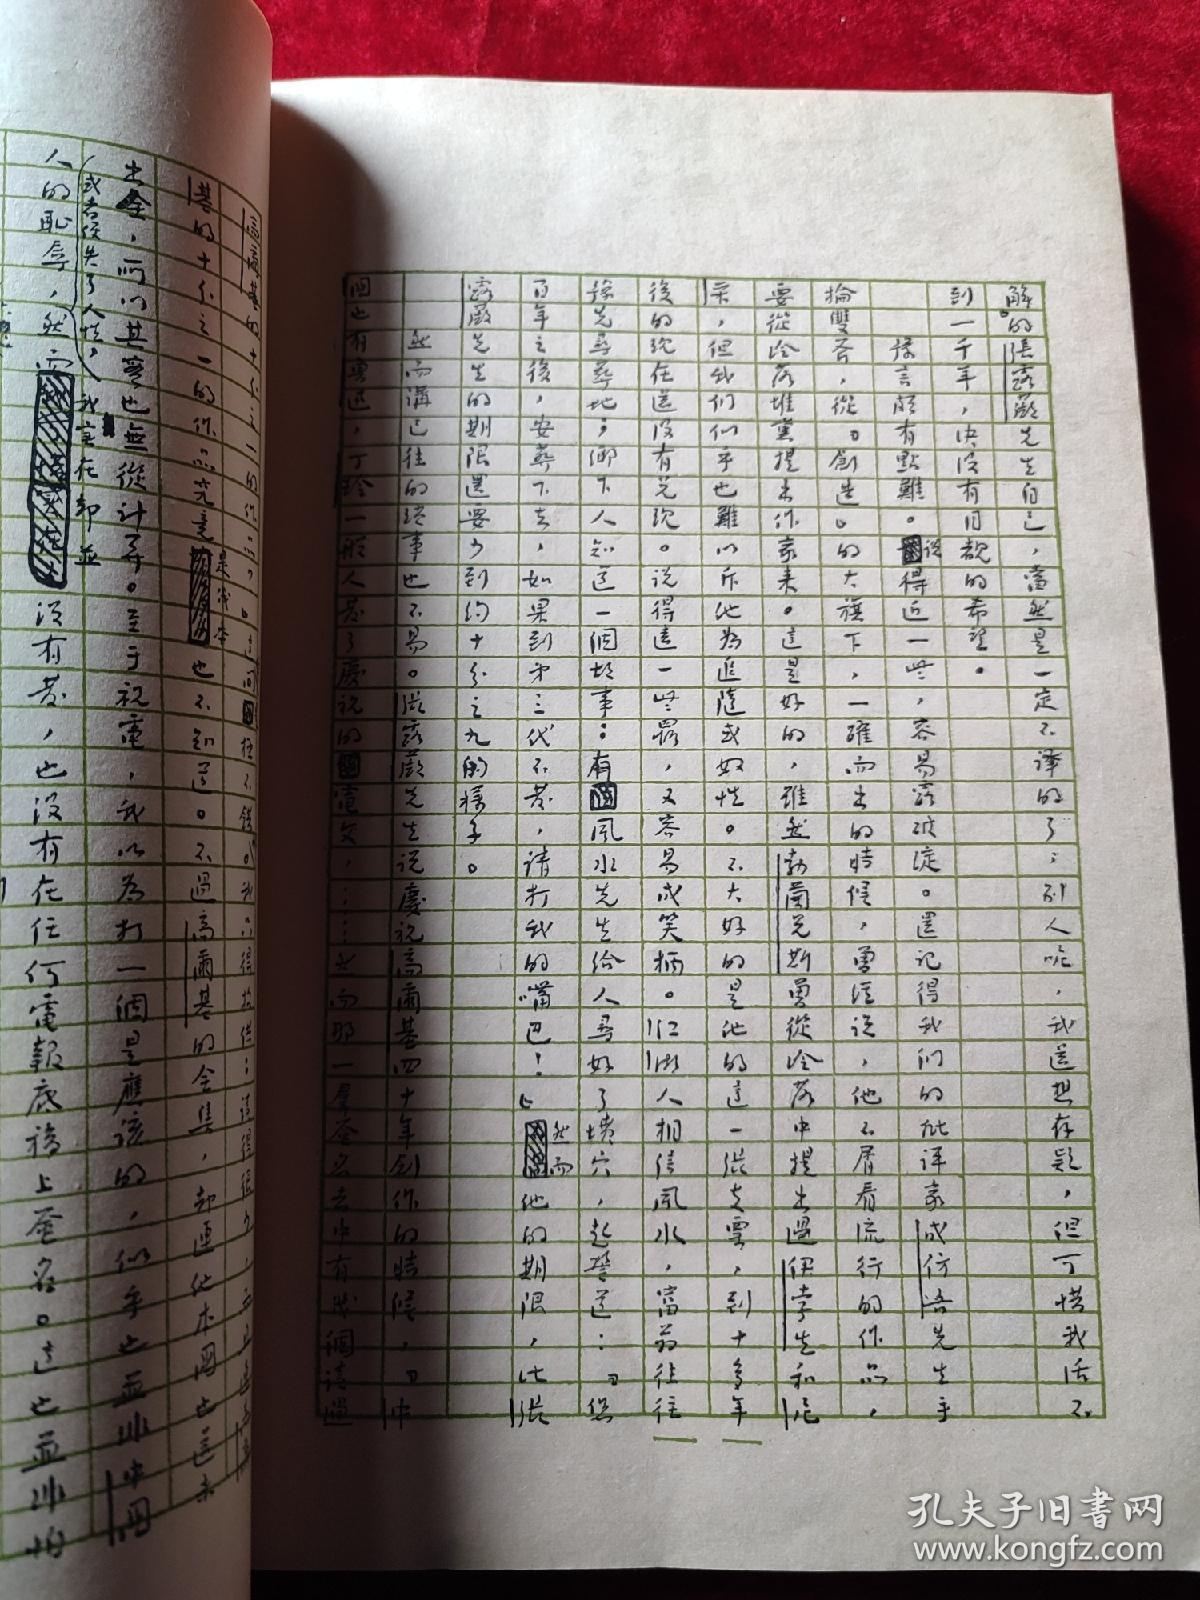 解的張露薇先生自己，當然是一定不譯的了；別人呢，我還想存疑，但可惜我活不
到一千年，決沒有目覩的希望。
豫言頗有點難。說得近一些，容易露破綻。還記得我們的批評家成仿吾先生手
掄雙斧，從「創造」的大旗下，一躍而出的時候，曾經說，他不屑看流行的作品，
要從冷落堆裏提出作家來。這是好的，雖然勃蘭兌斯曾從冷落中提出過伊孛生和尼
采，但我們似乎也難以斥他為追隨或奴性。不大好的是他的這一張支票，到十多年
後的現在還沒有兌現。說得遠一些罷，又容易成笑柄。江浙人相信風水，富翁往往
豫先尋葬地；鄉下人知道一個故事：有風水先生給人尋好了墳穴，起誓道：「您
百年之後，安葬下去，如果到第三代不發，請打我的嘴巴！」然而他的期限，比張
露薇先生的期限還要少到約十分之九的樣子。
然而講已往的瑣事也不易。張露薇先生說慶祝高爾基四十年創作的時候，「中
國也有魯迅，丁玲一般人發了慶祝的電文，……然而那一羣簽名者中有幾個讀過
高爾基的十分之一的作品？」這質問是極不錯的。我只得招供：讀得很少，而且連高爾
基的十分之一的作品究竟是幾本也不知道。不過高爾基的全集，却連他本國也還未
出全，所以其實也無從計算。至于祝電，我以為打一個是應該的，似乎也並非中國
（或者便失了人性，）我實在却並
人的恥辱，然而沒有發，也沒有在任何電報底稿上簽名。這也並非怕
孔夫子旧书网
www.kongfz.com